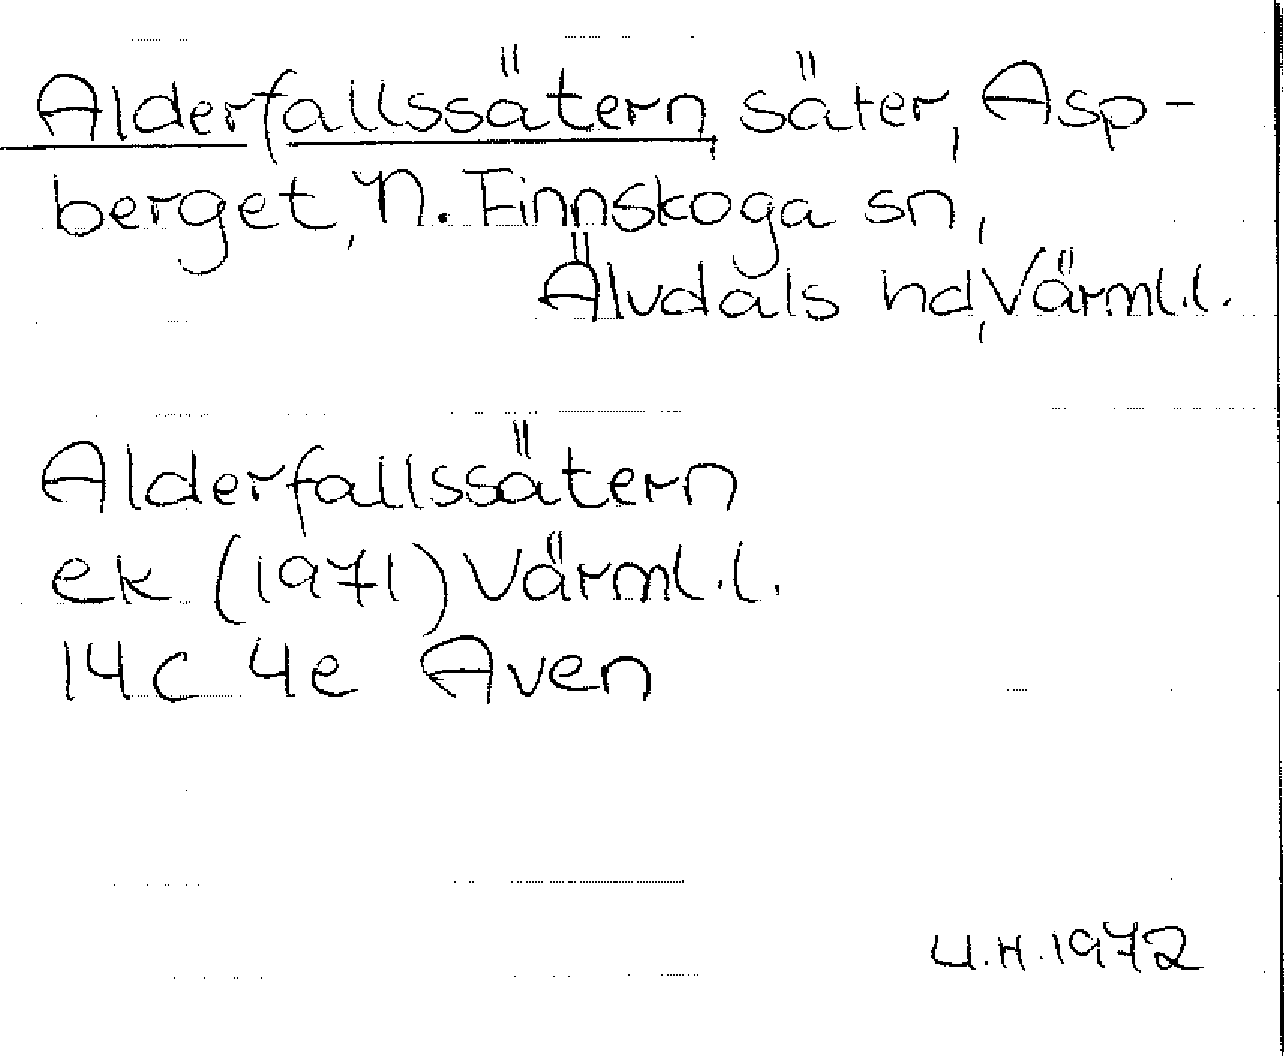 Alderfallssätern, säter, Asp-
berget, N. Finnskoga sn,
Älvdals hd, Värml.l.
Alderfallssätern
ek (1971) Värml.l.
14c 4e Aven
U.H.1972